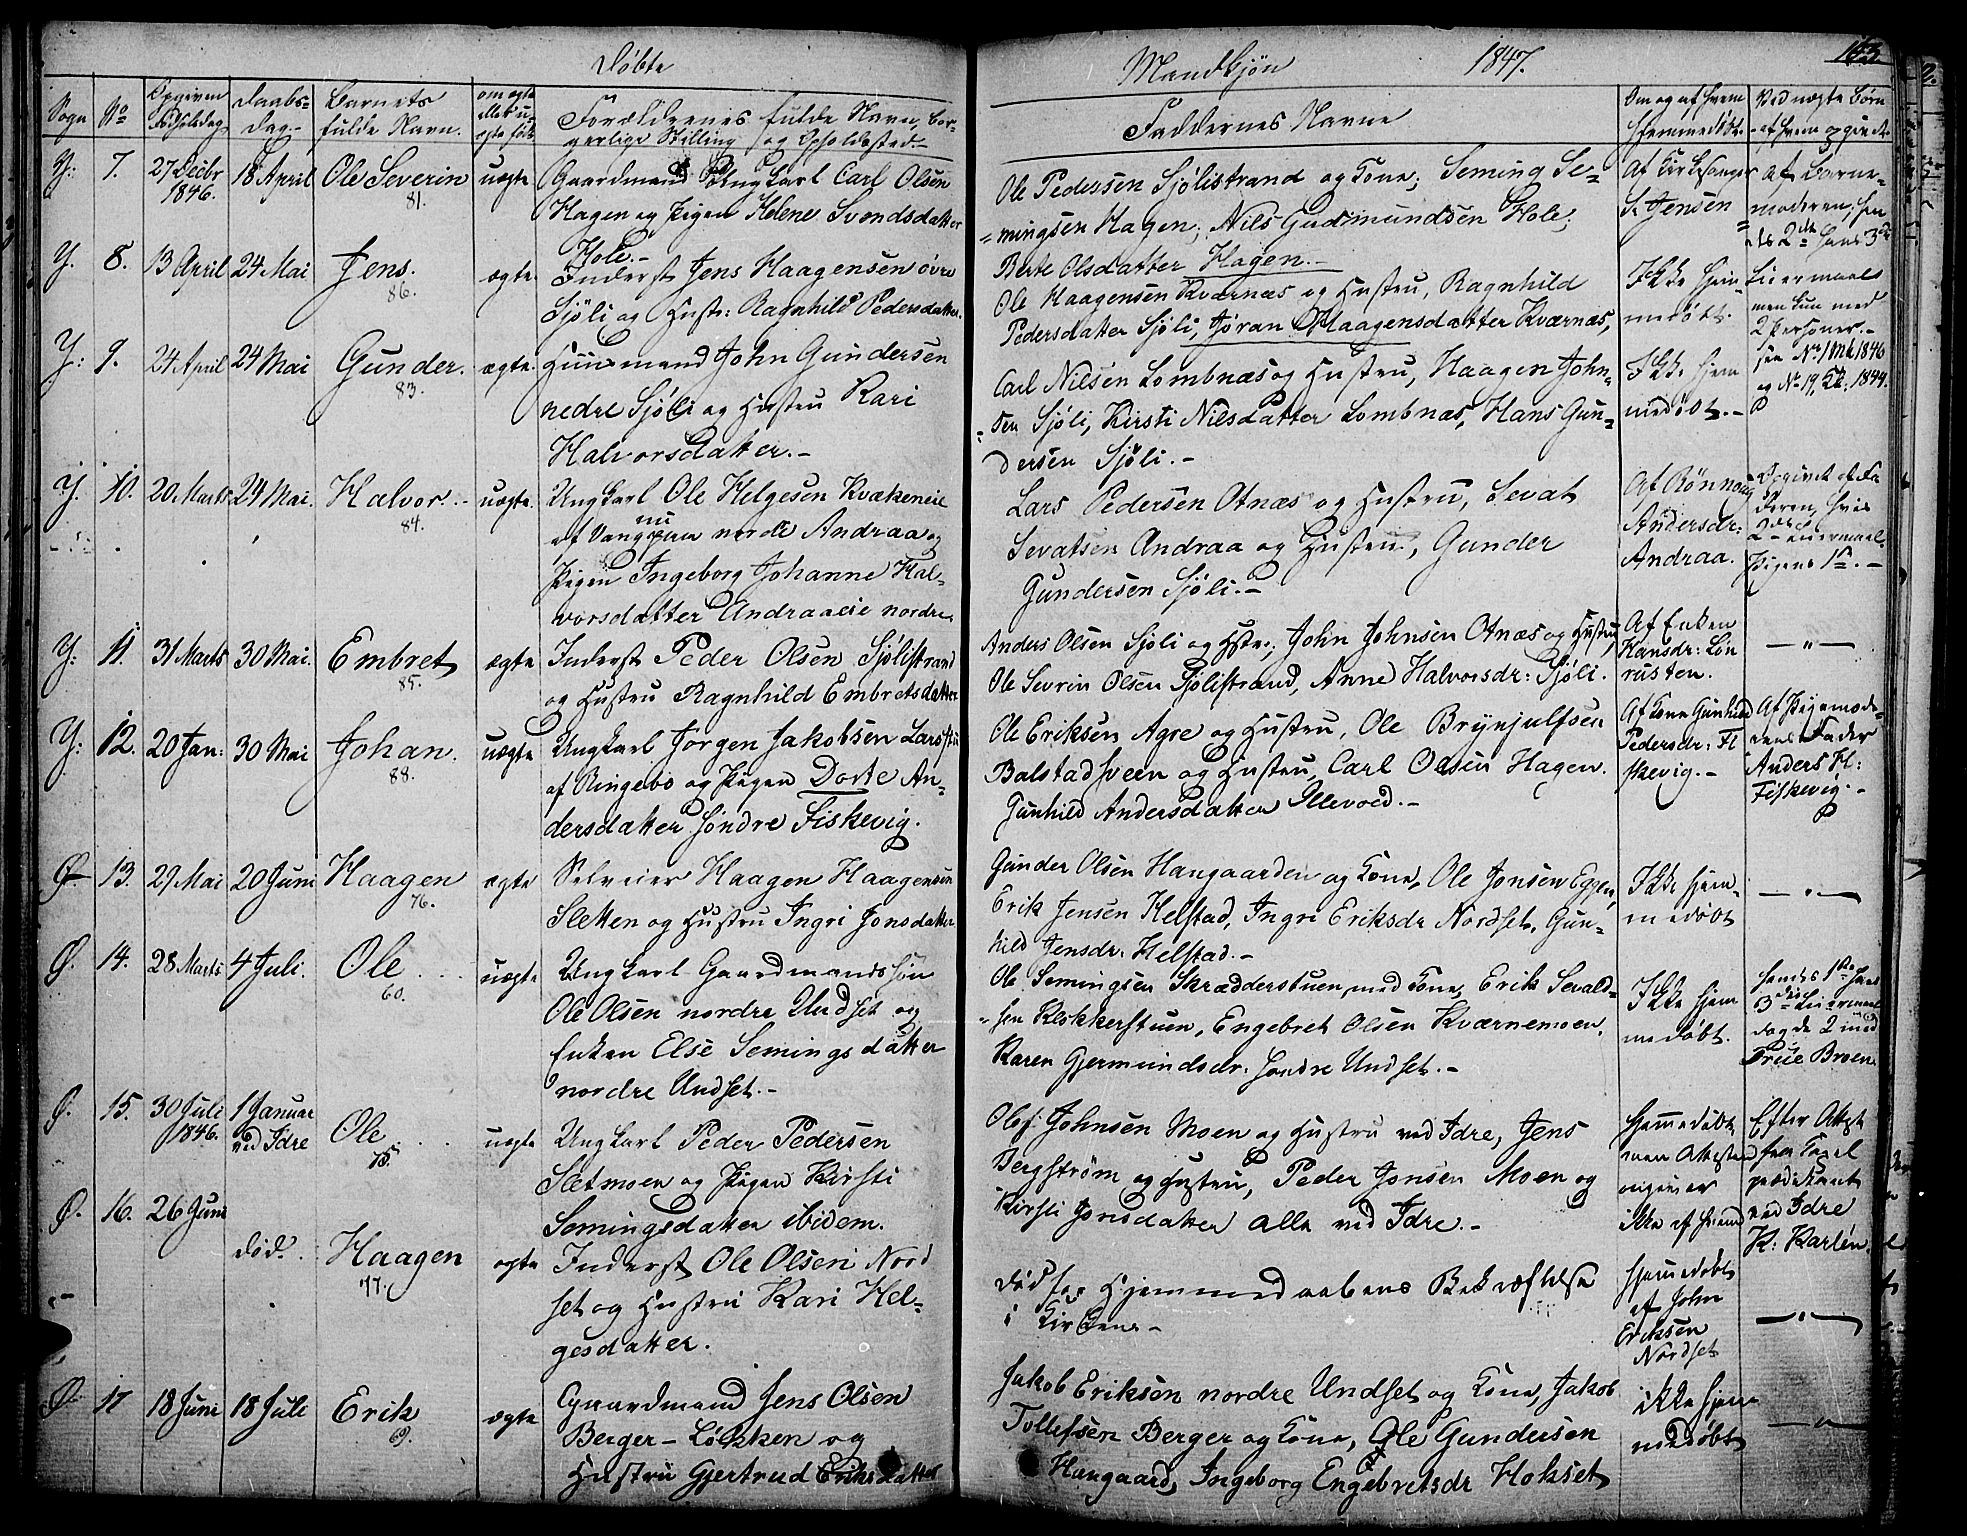 Døbte
Mandkjøn 1847.
Sogn No Opgiven Fødselsdag Daabs-Dag Barnets fulde Navn. om ægte eller uægte født Forældrenes fulde Navn, borgerlige Stilling og Opholdssted.
Faddernes Navne
Om og af hvem hjemmedøbt. Ved uægte Børn af hvem opgivet
Y: 7. 27 Decbr 1846. 18 April Ole Severin 81. uægte
Gaardmand Ungkarl Carl Olsen
Hagen og Pigen Helene Svendsdatter
Hole.
Ole Pedersen Sjølistrand og Kone; Seming Se-
mingsen Hagen; Nils Gudmundsen Hole;
Berte Olsdatter Hagen.
Af Kirkesanger
S. Jensen
Af Barne-
moderen;
Y. 8. 13 April 24 Mai Jens. 86. ægte.
Inderst Jens Haagensen øvre
Sjøli og Hustr: Ragnhild Pedersdatter.
Ole Haagensen Kværnæs og Hustru, Ragnhild
Pedersdatter Sjøli, Jøran Haagensdatter Kværnæs,
Ikke hjem-
medøbt.
Leiermaal
men kun med
2 Personer.-
see No 1 Mk 1846
og No 19, Kk: 1844.
Y: 9. 24 April 24 Mai Gunder. 83. ægte.
Huusmand John Gundersen
nedre Sjøli og Hustru Kari
Halvorsdatter.-
Carl Nilsen Lombnæs og Hustru, Haagen John-
sen Sjøli, Kirsti Nilsdatter Lombnæs, Hans Gun-
dersen Sjøli.-
Ikke hjem
medøbt.-
Y. 10. 20 Marts 24 Mai. Halvor. 84. uægte.
Ungkarl Ole Helgesen Kvækeneie
af Vang nu nordre Andraa og
Pigen Ingeborg Johanne Hal-
vorsdatter Andraaeie nordre
Lars Pedersen Otnæs og Hustru, Sevat
Sevatsen Andraa og Hustru, Gunder
Gundersen Sjøli.-
Af Rønnoug
Andersdr:
Andraa.
Opgivet af Fa
deren, hvis
2det Leiermaal.
Pigens 1ste.-
Y: 11. 31 Marts 30 Mai. Embret 85. ægte
Inderst Peder Olsen Sjølistrand
og Hustru Ragnhild Embretsdatter
Anders Olsen Sjøli og Hstr:, John Johnsen Otnæs og Hustru,
Ole Sevrin Olsen Sjølistrand, Anne Halvorsdr: Sjøli.
Af Enken
Hansdr: Løn
rusten.
Y: 12. 20 Jan: 30 Mai Johan. 88. uægte
Ungkarl Jørgen Jakobsen Larsstu
af Ringebo og Pigen Dorte An-
dersdatter søndre Fiskevig.
Ole Eriksen Agre og Hustru, Ole Brynjulfsen
Bolstadsveen og Hustru, Carl Olsen Hagen.
Gunhild Andersdatter Illevold.-
Af Kone Gunhild
Pedersdr: Fi
skevig.-
Af Pigemode-
rens Fader
Anders H:
Fiskevig.-
Ø. 13. 29 Mai 20 Juni Haagen 76. ægte
Selveier Haagen Haagensen
Sletten og Hustru Ingri Jonsdatter
Gunder Olsen Haugaarden og Kone, Ole Jonsen Eggen,
Erik Jensen Helstad, Ingri Eriksdr Nordset, Gun-
hild Jensdr. Helstad.-
Ikke hjem-
medøbt
Ø. 14. 28 Marts 4 Juli. Ole 60. uægte
Ungkarl Gaardmandssøn
Ole Olsen nordre Undset og
Enken Else Semingsdatter
nordre Undset.-
Ole Semingsen Skrædderstuen med Kone, Erik Sevald-
sen Klokkerstuen, Engebret Olsen Kværnemoen,
Karen Gjermundsdr. søndre Undset.-
Ikke hjem
medøbt.
hendes 1ste hans
3die Leiermaal
dog de 2 med
Ø. 15. 30 Juli 1846. 1 Januar ved Idre Ole 75. uægte
Ungkarl Peder Pedersen
Sletmoen og Pigen Kirsti
Semingsdatter ibidem.
Olof Johnsen Moen og Hustru ved Idre, Jens
Bergström og Hustru, Peder Jonsen Moen og
Kirsti Jonsdatter alle ved Idre.-
hjemmedøbt
men Attesten
angiver
ikke af hvem
Efter Attest
fra Kapel
prædikant
ved Idre
K: Karlén.
Ø. 16. 26 Juni død. Haagen 77. ægte
Inderst Ole Olsen Nord
set og Hustru Kari Hel-
gesdatter.
død før Hjemmedaabens Bekræftelse
i Kirken.-
hjemedøbt
af John
Eriksen
Nordset
Ø. 17 18 Juni 18 Juli Erik 69. ægte
Gaardmand Jens Olsen
Berger-Løkken og
Hustru Gjertrud Eriksdatter
Jakob Eriksen nordre Undset og Kone, Jakob
Tollefsen Berger og Kone, Ole Gundersen
Haugaard, Ingeborg Engebretsdr Hokset
ikke hjem
medøbt